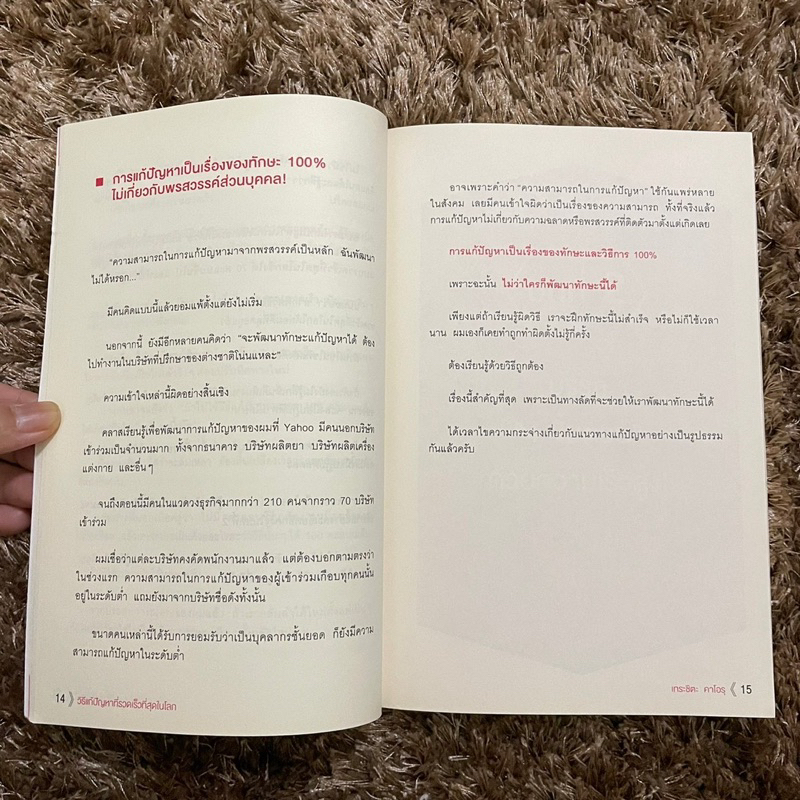 การแก้ปัญหาเป็นเรื่องของทักษะ 100%
ไม่เกี่ยวกับพรสวรรค์ส่วนบุคคล!
"ความสามารถในการแก้ปัญหามาจากพรสวรรค์เป็นหลัก ฉันพัฒนา
ไม่ได้หรอก..."
มีคนคิดแบบนี้แล้วยอมแพ้ตั้งแต่ยังไม่เริ่ม
นอกจากนี้ ยังมีอีกหลายคนคิดว่า "จะพัฒนาทักษะแก้ปัญหาได้ ต้อง
ไปทำงานในบริษัทที่ปรึกษาของต่างชาติโน่นแหละ"
ความเข้าใจเหล่านี้ผิดอย่างสิ้นเชิง
คลาสเรียนรู้เพื่อพัฒนาการแก้ปัญหาของผมที่ Yahoo มีคนนอกบริษัท
เข้าร่วมเป็นจำนวนมาก ทั้งจากธนาคาร บริษัทผลิตยา บริษัทผลิตเครื่อง
แต่งกาย และอื่นๆ
จนถึงตอนนี้มีคนในแวดวงธุรกิจมากกว่า 210 คนจากราว 70 บริษัท
เข้าร่วม
ผมเชื่อว่าแต่ละบริษัทคงคัดพนักงานมาแล้ว แต่ต้องบอกตามตรงว่า
ในช่วงแรก ความสามารถในการแก้ปัญหาของผู้เข้าร่วมเกือบทุกคนนั้น
อยู่ในระดับต่ำ แถมยังมาจากบริษัทชื่อดังทั้งนั้น
ขนาดคนเหล่านี้ได้รับการยอมรับว่าเป็นบุคลากรชั้นยอด ก็ยังมีความ
สามารถแก้ปัญหาในระดับต่ำ
14 》 วิธีแก้ปัญหาที่รวดเร็วที่สุดในโลก
อาจเพราะคำว่า "ความสามารถในการแก้ปัญหา" ใช้กันแพร่หลาย
ในสังคม เลยมีคนเข้าใจผิดว่าเป็นเรื่องของความสามารถ ทั้งที่จริงแล้ว
การแก้ปัญหาไม่เกี่ยวกับความฉลาดหรือพรสวรรค์ที่ติดตัวมาตั้งแต่เกิดเลย
การแก้ปัญหาเป็นเรื่องของทักษะและวิธีการ 100%
เพราะฉะนั้น ไม่ว่าใครก็พัฒนาทักษะนี้ได้
เพียงแต่ถ้าเรียนรู้ผิดวิธี เราจะฝึกทักษะนี้ไม่สำเร็จ หรือไม่ก็ใช้เวลา
นาน ผมเองก็เคยทำถูกทำผิดตั้งไม่รู้กี่ครั้ง
ต้องเรียนรู้ด้วยวิธีถูกต้อง
เรื่องนี้สำคัญที่สุด เพราะเป็นทางลัดที่จะช่วยให้เราพัฒนาทักษะนี้ได้
ได้เวลาไขความกระจ่างเกี่ยวกับแนวทางแก้ปัญหาอย่างเป็นรูปธรรม
กันแล้วครับ
เทระชิตะ คาโอรุ 《 15